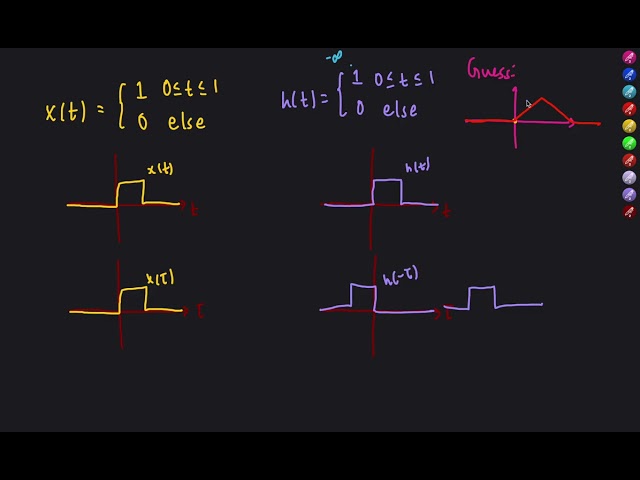 x(t) = { 1 0≤t≤1
0 else
-∞
h(t) = { 1 0≤t≤1
0 else
Guess:
x(t)
t
h(t)
t
x(τ)
τ
h(-τ)
τ